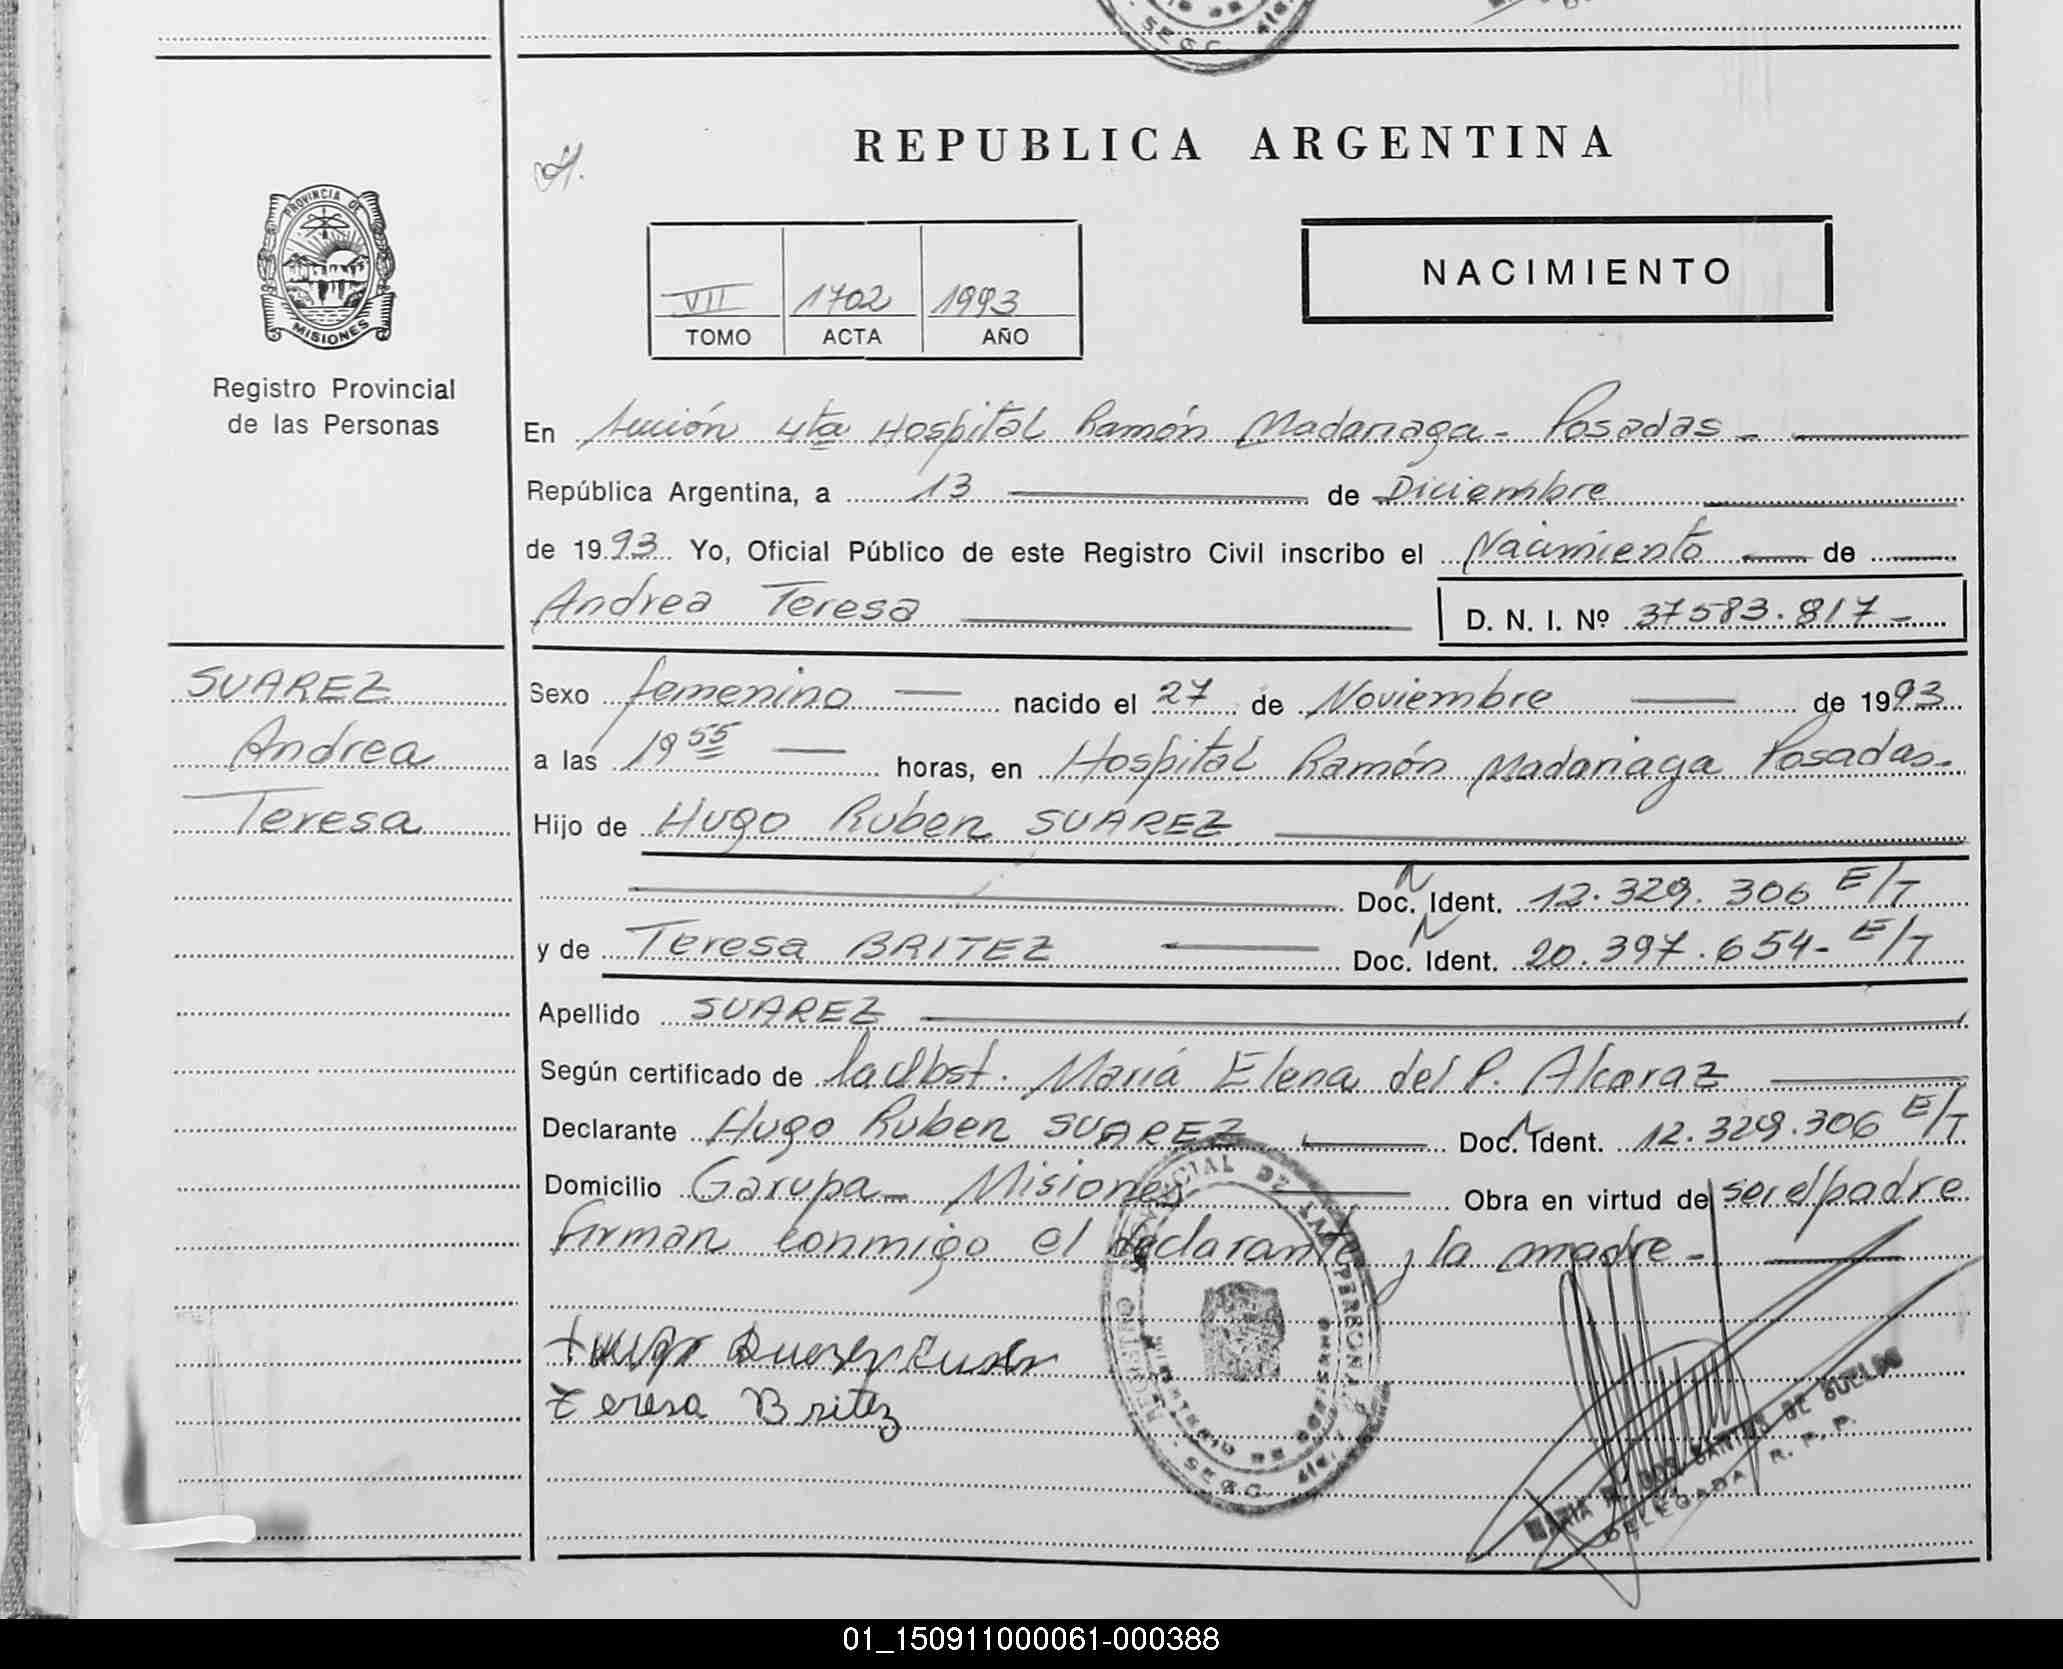 REPUBLICA ARGENTINA
PROVINCIA DE
MISIONES
Registro Provincial
de las Personas
NACIMIENTO
VII 1702 1993
TOMO ACTA AÑO
En Sección 4ta Hospital Ramón Madariaga - Posadas -
República Argentina, a 13 de Diciembre
de 1993 Yo, Oficial Público de este Registro Civil inscribo el Nacimiento de
Andrea Teresa D. N. I. Nº 37583.817-
SUAREZ
Andrea
Teresa
Sexo femenino nacido el 27 de Noviembre de 1993
a las 19 55 horas, en Hospital Ramón Madariaga Posadas.
Hijo de Hugo Ruben SUAREZ
Doc. N Ident. 12.329.306 E/T
y de Teresa BRITEZ Doc. N Ident. 20.397.654- E/T
Apellido SUAREZ
Según certificado de la Obst. María Elena del P. Alcaraz
Declarante Hugo Ruben SUAREZ Doc. N Ident. 12.329.306 E/T
Domicilio Garupa - Misiones Obra en virtud de ser el padre
firman conmigo el declarante y la madre -
Teresa Britez
MARIA DOS SANTOS DE
DELEGADA R. P. P.
01_150911000061-000388